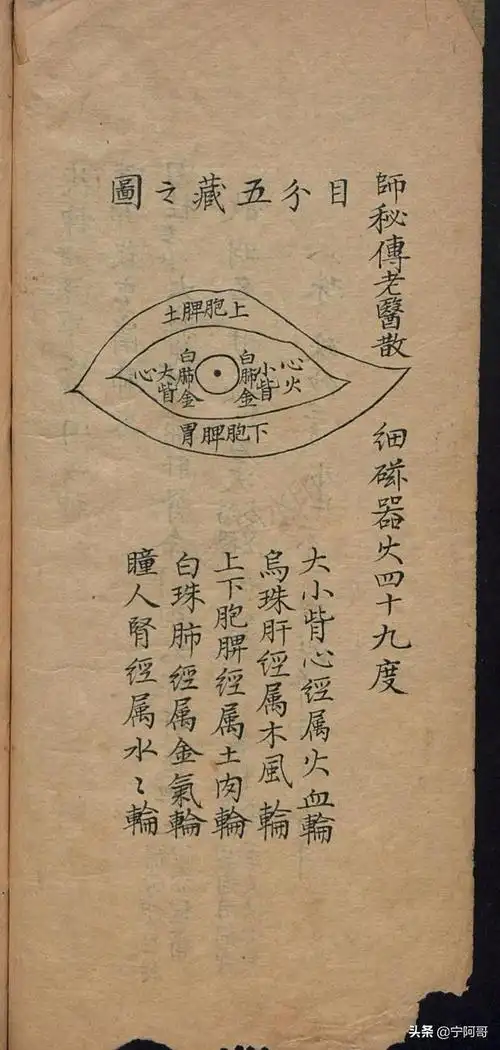 師秘傳老醫散 細磁器火四十九度
目分五藏之圖
上胞脾土
心火
小眥
白肺金
白肺金
大眥
心
下胞脾胃
大小眥心經属火血輪
烏珠肝經属木風輪
上下胞脾經属土肉輪
白珠肺經属金氣輪
瞳人腎經属水〻輪
头条 @宁阿哥